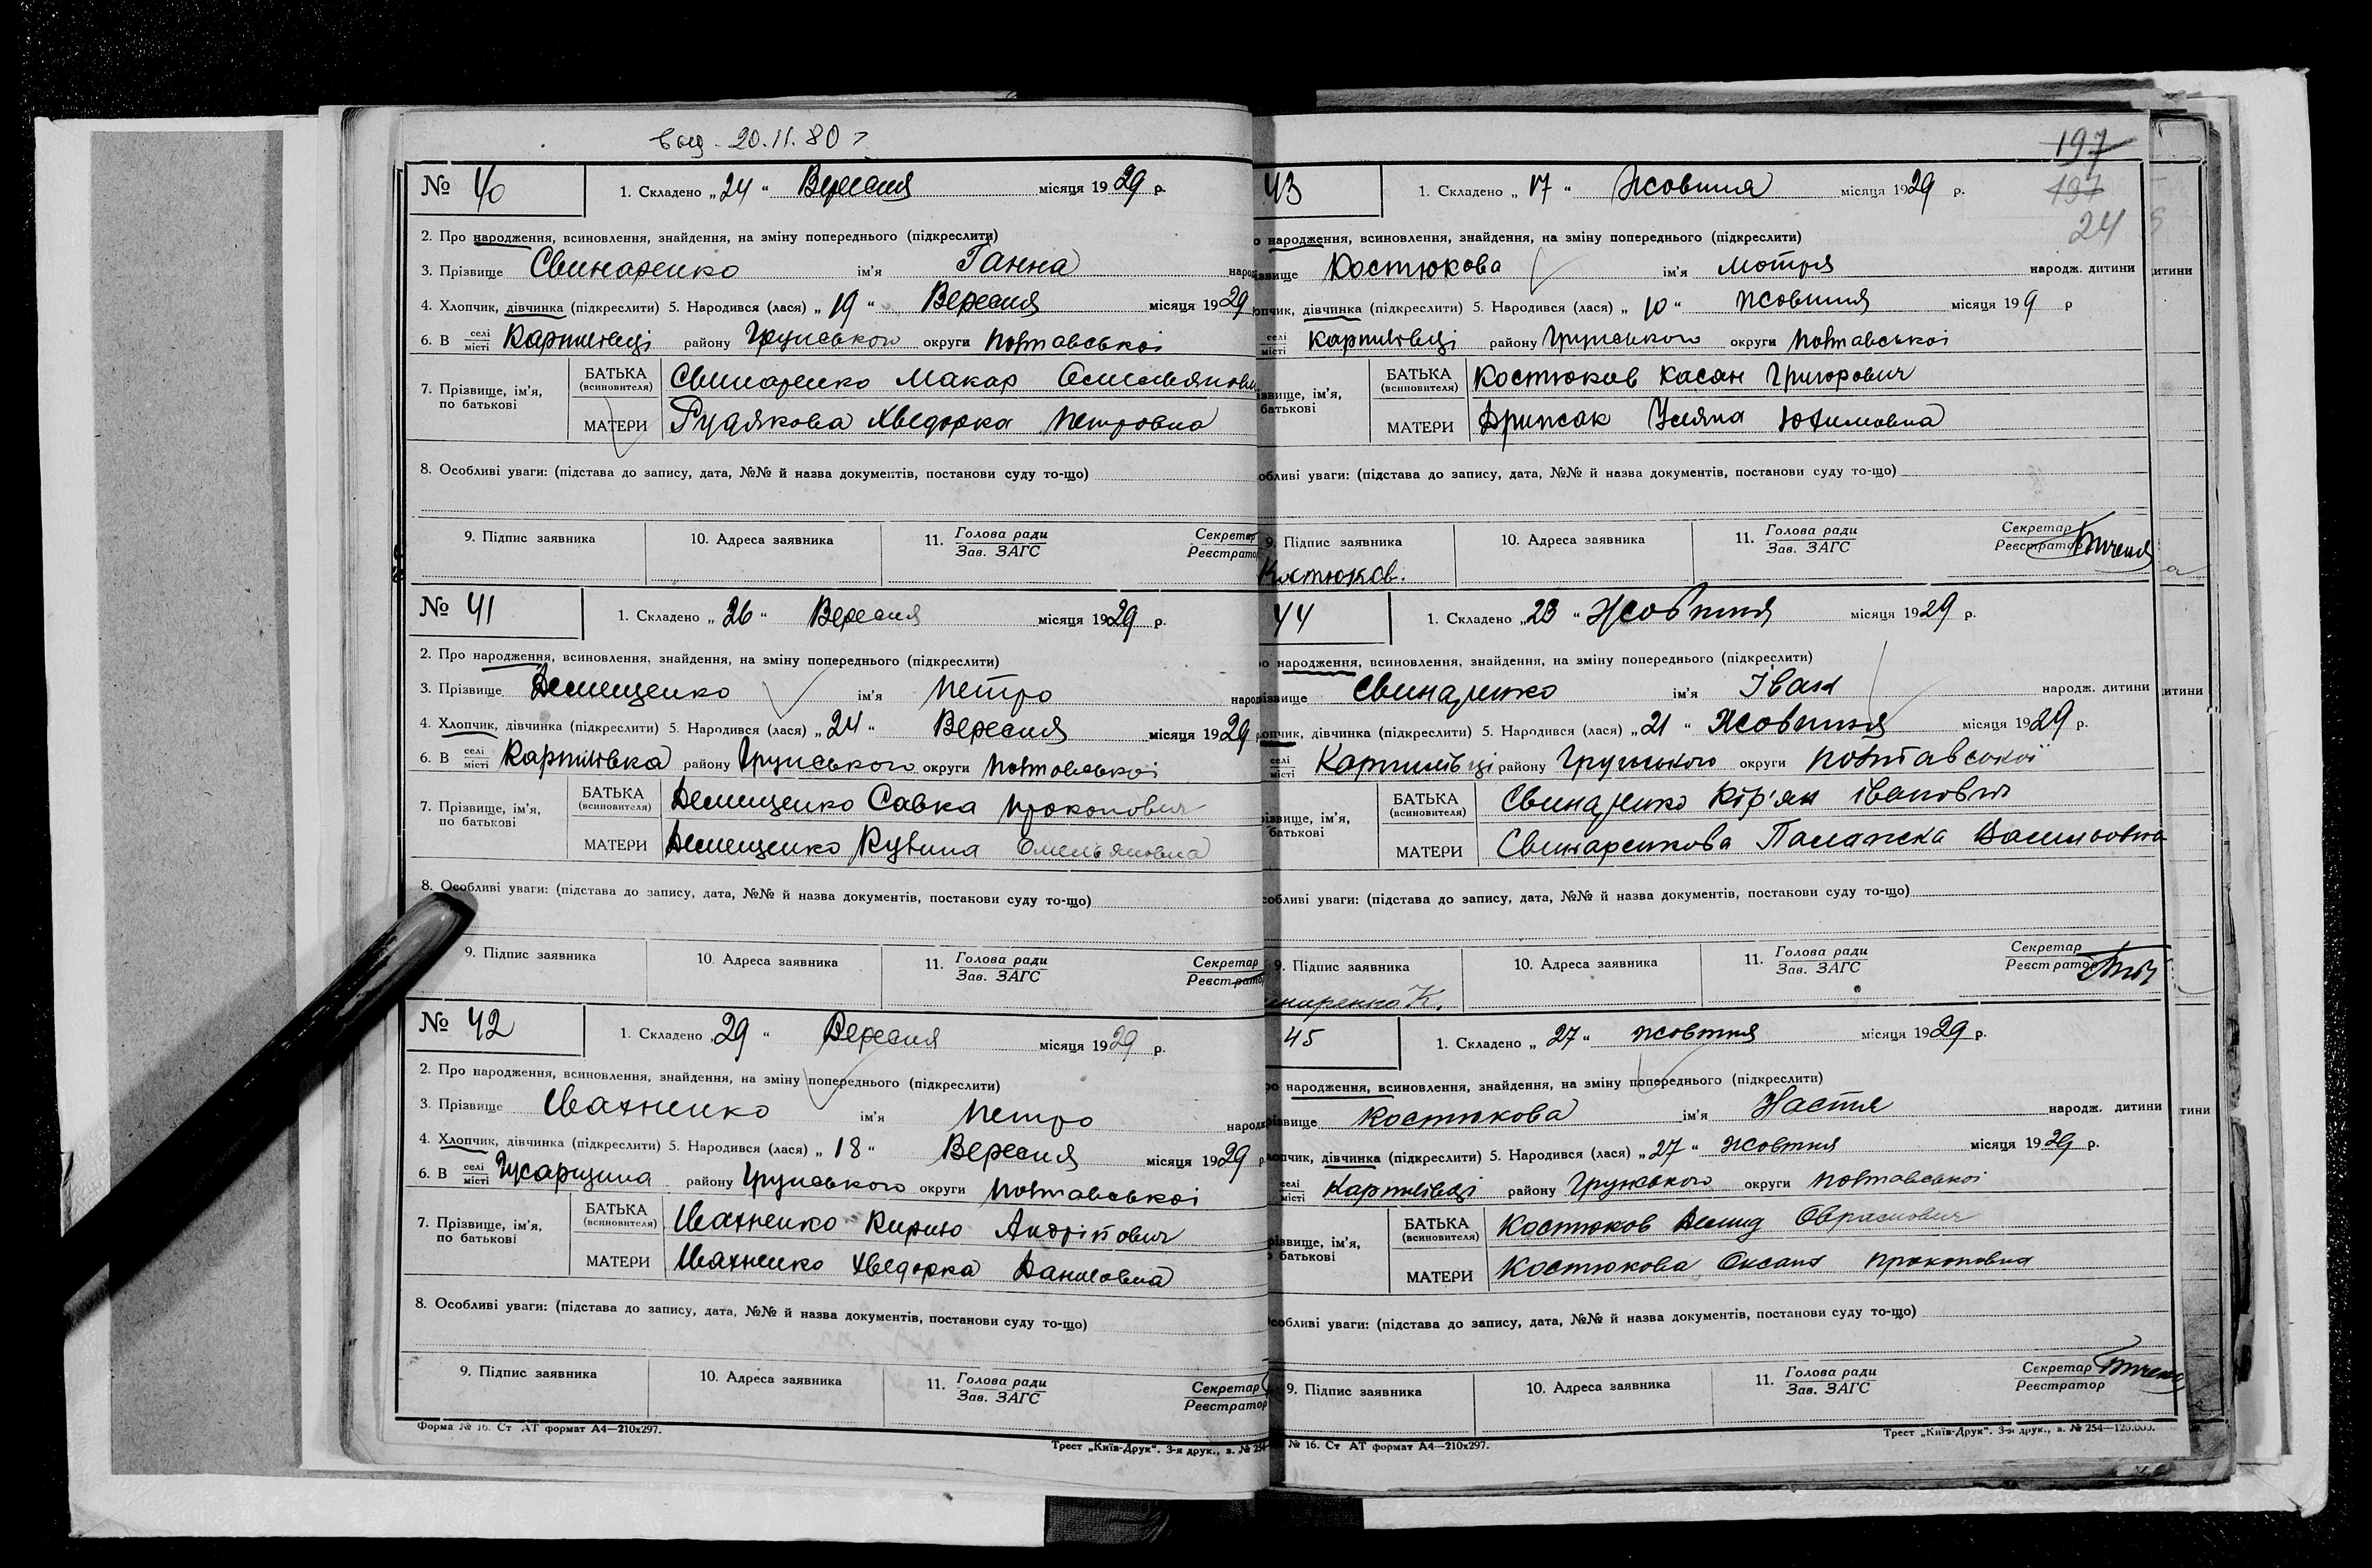 20.11.80
№ 40
1. Складено „24“ Вересня місяця 1929 р.
2. Про народження, всиновлення, знайдення, на зміну попереднього (підкреслити)
3. Прізвище Свинаренко ім'я Ганна народ
4. Хлопчик, дівчинка (підкреслити) 5. Народився (лася) „19“ Вересня місяця 1929
6. В селі місті Карпилівці району Грунського округи Полтавської
7. Прізвище, ім'я, по батькові
БАТЬКА (всиновителя) Свинаренко Макар
МАТЕРИ Рудякова Хведорка Петровна
8. Особливі уваги: (підстава до запису, дата, №№ й назва документів, постанови суду то-що)
9. Підпис заявника 10. Адреса заявника 11. Голова ради Зав. ЗАГС Секретар Реєстратор
№ 41
1. Складено „26“ Вересня місяця 1929 р.
2. Про народження, всиновлення, знайдення, на зміну попереднього (підкреслити)
3. Прізвище Демещенко ім'я Петро народ
4. Хлопчик, дівчинка (підкреслити) 5. Народився (лася) „24“ Вересня місяця 1929
6. В селі місті Карпилівка району Грунського округи Полтавської
7. Прізвище, ім'я, по батькові
БАТЬКА (всиновителя) Демещенко Савка Прокопович
МАТЕРИ Демещенко Омельяновна
8. Особливі уваги: (підстава до запису, дата, №№ й назва документів, постанови суду то-що)
9. Підпис заявника 10. Адреса заявника 11. Голова ради Зав. ЗАГС Секретар Реєстратор
№ 42
1. Складено „29“ Вересня місяця 1929 р.
2. Про народження, всиновлення, знайдення, на зміну попереднього (підкреслити)
3. Прізвище Івахненко ім'я Петро народ
4. Хлопчик, дівчинка (підкреслити) 5. Народився (лася) „18“ Вересня місяця 1929 р
6. В селі місті Гусарщина району Грунського округи Полтавської
7. Прізвище, ім'я, по батькові
БАТЬКА (всиновителя) Івахненко Кирило Андрійович
МАТЕРИ Івахненко Хведорка Даниловна
8. Особливі уваги: (підстава до запису, дата, №№ й назва документів, постанови суду то-що)
9. Підпис заявника 10. Адреса заявника 11. Голова ради Зав. ЗАГС Секретар Реєстратор
Форма № 16. Ст АТ формат А4—210х297.
Трест „Київ-Друк“. 3-я друк., з. № 254
197
197
24
43
1. Складено „17“ Жовтня місяця 1929 р.
о народження, всиновлення, знайдення, на зміну попереднього (підкреслити)
ізвище Костюкова ім'я Мотря народж. дитини
опчик, дівчинка (підкреслити) 5. Народився (лася) „10“ Жовтня місяця 199 р
селі місті Карпилівці району Грунського округи Полтавської
ізвище, ім'я, батькові
БАТЬКА (всиновителя) Костюков Касян Григорович
МАТЕРИ Дрижак Уляна Юхимовна
обливі уваги: (підстава до запису, дата, №№ й назва документів, постанови суду то-що)
9. Підпис заявника 10. Адреса заявника 11. Голова ради Зав. ЗАГС Секретар Реєстратор
Костюков.
44
1. Складено „23“ Жовтня місяця 1929 р.
о народження, всиновлення, знайдення, на зміну попереднього (підкреслити)
ізвище Свинаренко ім'я Іван народж. дитини
опчик, дівчинка (підкреслити) 5. Народився (лася) „21“ Жовтня місяця 1929 р.
селі місті Карпилівці району Грунського округи Полтавської
ізвище, ім'я, батькові
БАТЬКА (всиновителя) Свинаренко Кір'ян Іванович
МАТЕРИ Свинаренкова Палажка Васильовна
собливі уваги: (підстава до запису, дата, №№ й назва документів, постанови суду то-що)
9. Підпис заявника 10. Адреса заявника 11. Голова ради Зав. ЗАГС Секретар Реєстратор
наренко К.
45
1. Складено „27“ жовтня місяця 1929 р.
ро народження, всиновлення, знайдення, на зміну попереднього (підкреслити)
різвище Костюкова ім'я Настя народж. дитини
лопчик, дівчинка (підкреслити) 5. Народився (лася) „27“ жовтня місяця 1929 р.
селі місті Карпилівці району Грунського округи Полтавської
різвище, ім'я, батькові
БАТЬКА (всиновителя) Костюков Демид
МАТЕРИ Костюкова Оксана Прокоповна
собливі уваги: (підстава до запису, дата, №№ й назва документів, постанови суду то-що)
9. Підпис заявника 10. Адреса заявника 11. Голова ради Зав. ЗАГС Секретар Реєстратор
№ 16. Ст АТ формат А4—210х297.
Трест „Київ-Друк“. 3-я друк., з. № 254—120.000.